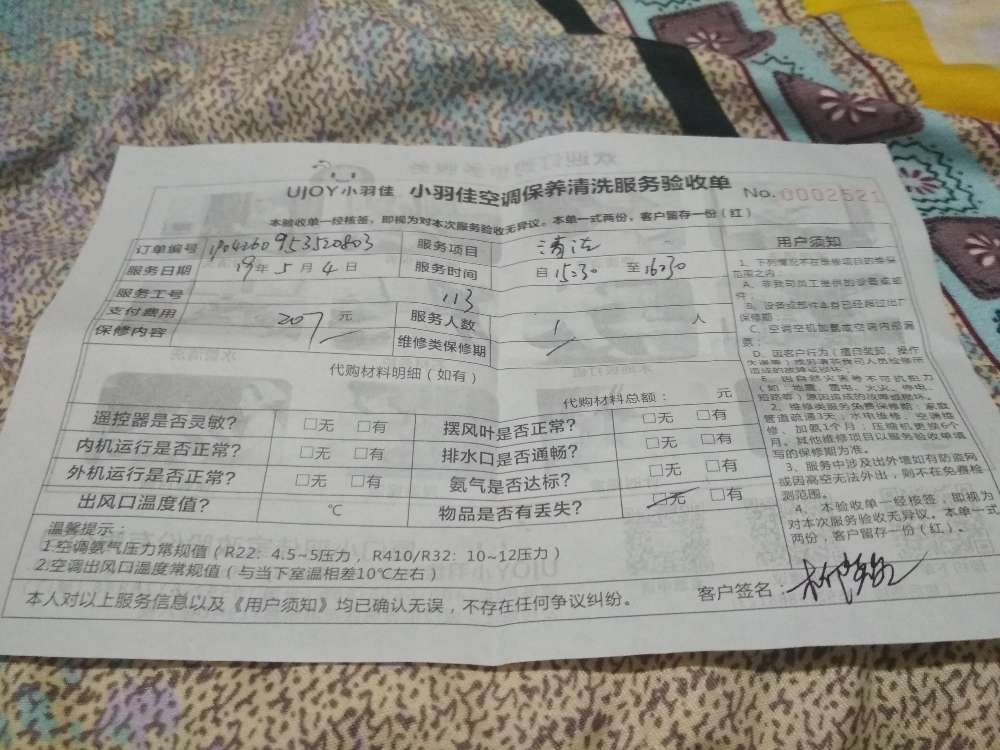 UJOY小羽佳 小羽佳空调保养清洗服务验收单 No.0002521
本验收单一经核签，即视为对本次服务验收无异议。本单一式两份，客户留存一份（红）
订单编号 服务项目 清洗
服务日期 19年5月4日 服务时间 自15:30 至16:30
服务工号 113
支付费用 207元 服务人数 1 人
保修内容 维修类保修期
代购材料明细（如有）
代购材料总额： 元
遥控器是否灵敏？ □无 □有 摆风叶是否正常？ □无 □有
内机运行是否正常？ □无 □有 排水口是否通畅？ □无 □有
外机运行是否正常？ □无 □有 氨气是否达标？ □无 □有
出风口温度值？ ℃ 物品是否有丢失？ □无 □有
温馨提示：
1.空调氨气压力常规值（R22：4.5~5压力，R410/R32：10~12压力）
2.空调出风口温度常规值（与当下室温相差10℃左右）
本人对以上服务信息以及《用户须知》均已确认无误，不存在任何争议纠纷。
客户签名：
用户须知
1、下列情况不在维修项目的维保
范围之内：
A、非我司员工提供的设备或部
件；
B、设备或部件本身已经超过出厂
保修期；
C、空调空机加氨或空调内部漏
氨；
D、因客户行为（擅自装卸、操作
E、因自然灾害等不可抗拒力
（如：地震、雷电、火灾、停电、
短路等）原因造成的故障或损坏。
2、维修类服务免费保修期：家庭
管道疏通3天；水电维修、空调维
修、加氨1个月；压缩机更换6个
月。其他维修项目以服务验收单填
写的保修期为准。
3、服务中涉及出外墙如有防盗网
或因高空无法外出，则不在免费检
测范围。
4、本验收单一经核签，即视为
对本次服务验收无异议。本单一式
两份，客户留存一份（红）。